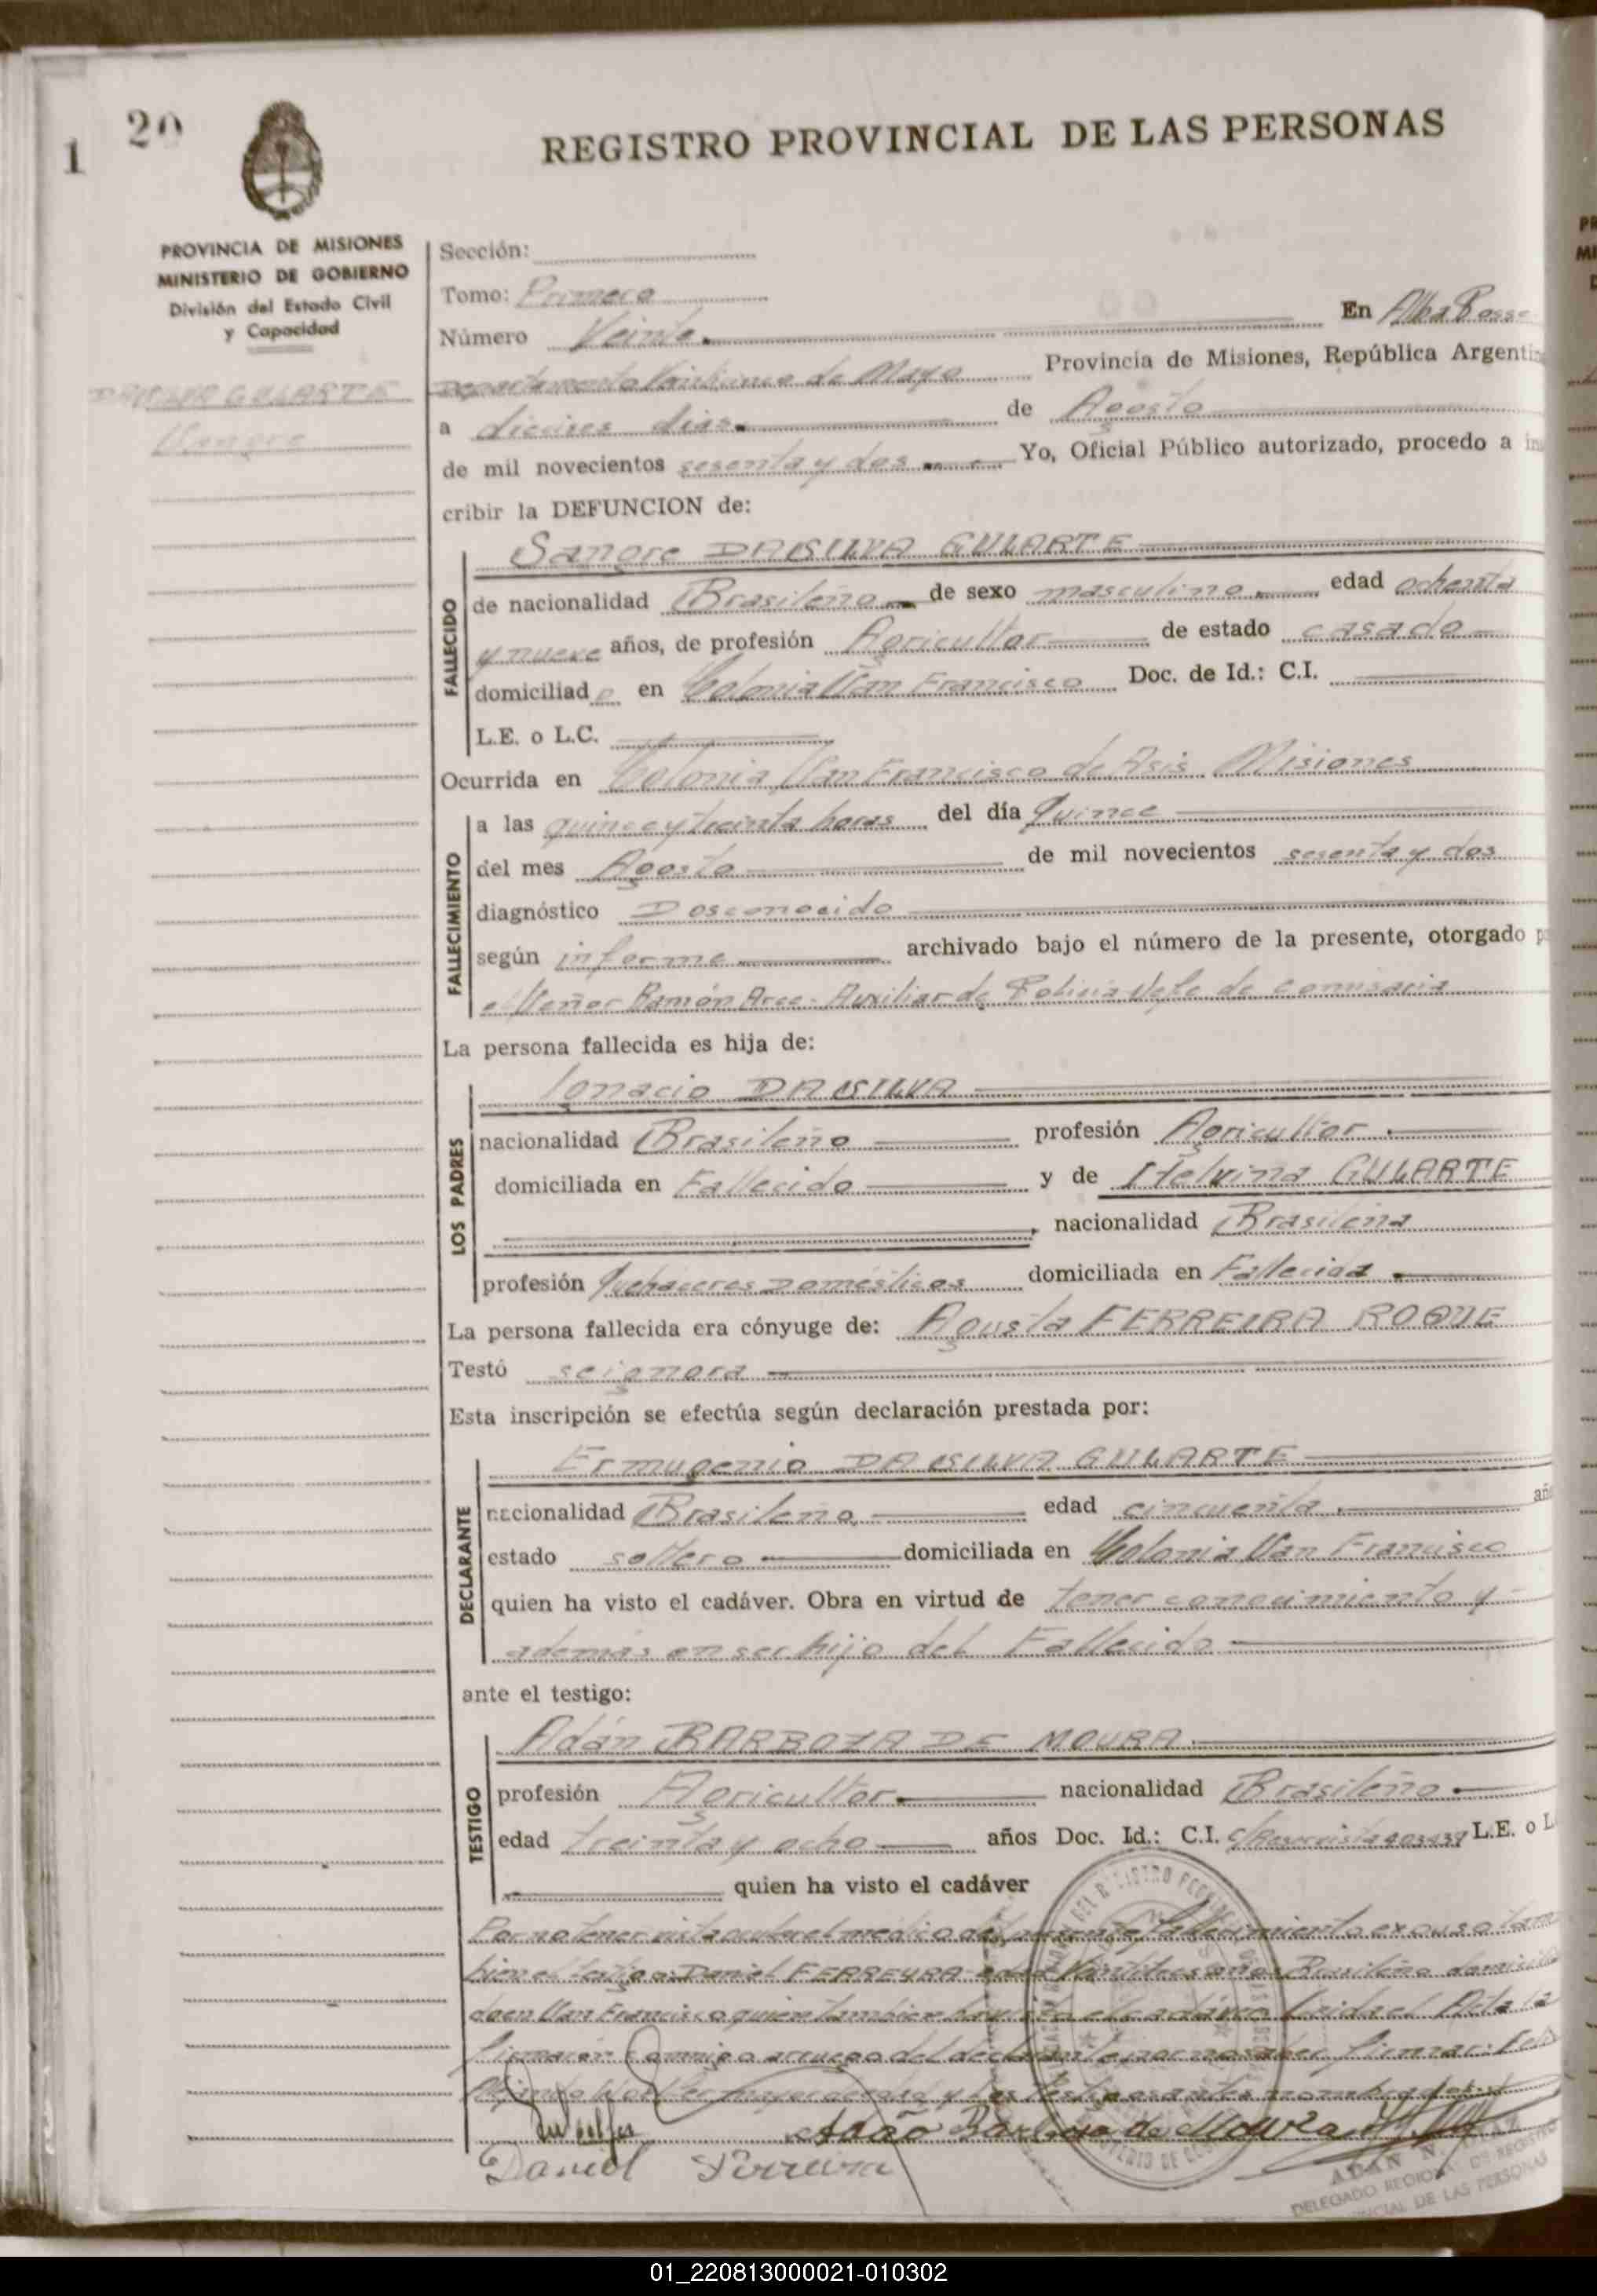 1
20
REGISTRO PROVINCIAL DE LAS PERSONAS
PROVINCIA DE MISIONES
MINISTERIO DE GOBIERNO
División del Estado Civil
y Capacidad
DA SILVA GULARTE
Sección:
Tomo: Primero
Número Veinte
En Alba Posse
Departamento Veinticinco de Mayo Provincia de Misiones, República Argentin
a dieciseis dias de Agosto
de mil novecientos sesenta y dos Yo, Oficial Público autorizado, procedo a in
cribir la DEFUNCION de:
FALLECIDO
DA SILVA GULARTE
de nacionalidad Brasileño de sexo masculino edad ochenta
y nueve años, de profesión Agricultor de estado casado
domiciliado en Colonia San Francisco Doc. de Id.: C.I.
L.E. o L.C.
Ocurrida en Colonia San Francisco de Asis Misiones
FALLECIMIENTO
a las quince y treinta horas del día Quince
del mes Agosto de mil novecientos sesenta y dos
diagnóstico Desconocido
según informe archivado bajo el número de la presente, otorgado p
el Señor Ramón Arce. Auxiliar de Policia Jefe de comisaria
La persona fallecida es hija de:
LOS PADRES
Ignacio DA SILVA
nacionalidad Brasileño profesión Agricultor
domiciliada en Fallecido y de GULARTE
nacionalidad Brasileña
profesión Quehaceres Domésticos domiciliada en Fallecida
La persona fallecida era cónyuge de: Agusta FERREIRA ROQUE
Testó se ignora
Esta inscripción se efectúa según declaración prestada por:
DECLARANTE
Ermugenio DA SILVA GULARTE
nacionalidad Brasileño edad cincuenta añ
estado soltero domiciliada en Colonia San Francisco
quien ha visto el cadáver. Obra en virtud de tener conocimiento y
además en ser hijo del Fallecido
ante el testigo:
TESTIGO
Adán BARBOZA DE MOURA
profesión Agricultor nacionalidad Brasileño
edad treinta y ocho años Doc. Id.: C.I. L.E. o L
quien ha visto el cadáver
Por no tener el medico del presente fallecimiento tam
bien el testigo: Daniel FERREYRA edad años Brasileño domicilia
do en San Francisco quien tambien ha visto el cadáver Leida el Acta la
firmarón conmigo a ruego del declarante por no saber firmar:
y los testigos antes
Adão Barboza de Moura
Daniel Ferreira
DELEGADO REGIONAL DE REGISTRO
DE LAS PERSONAS
01_220813000021-010302